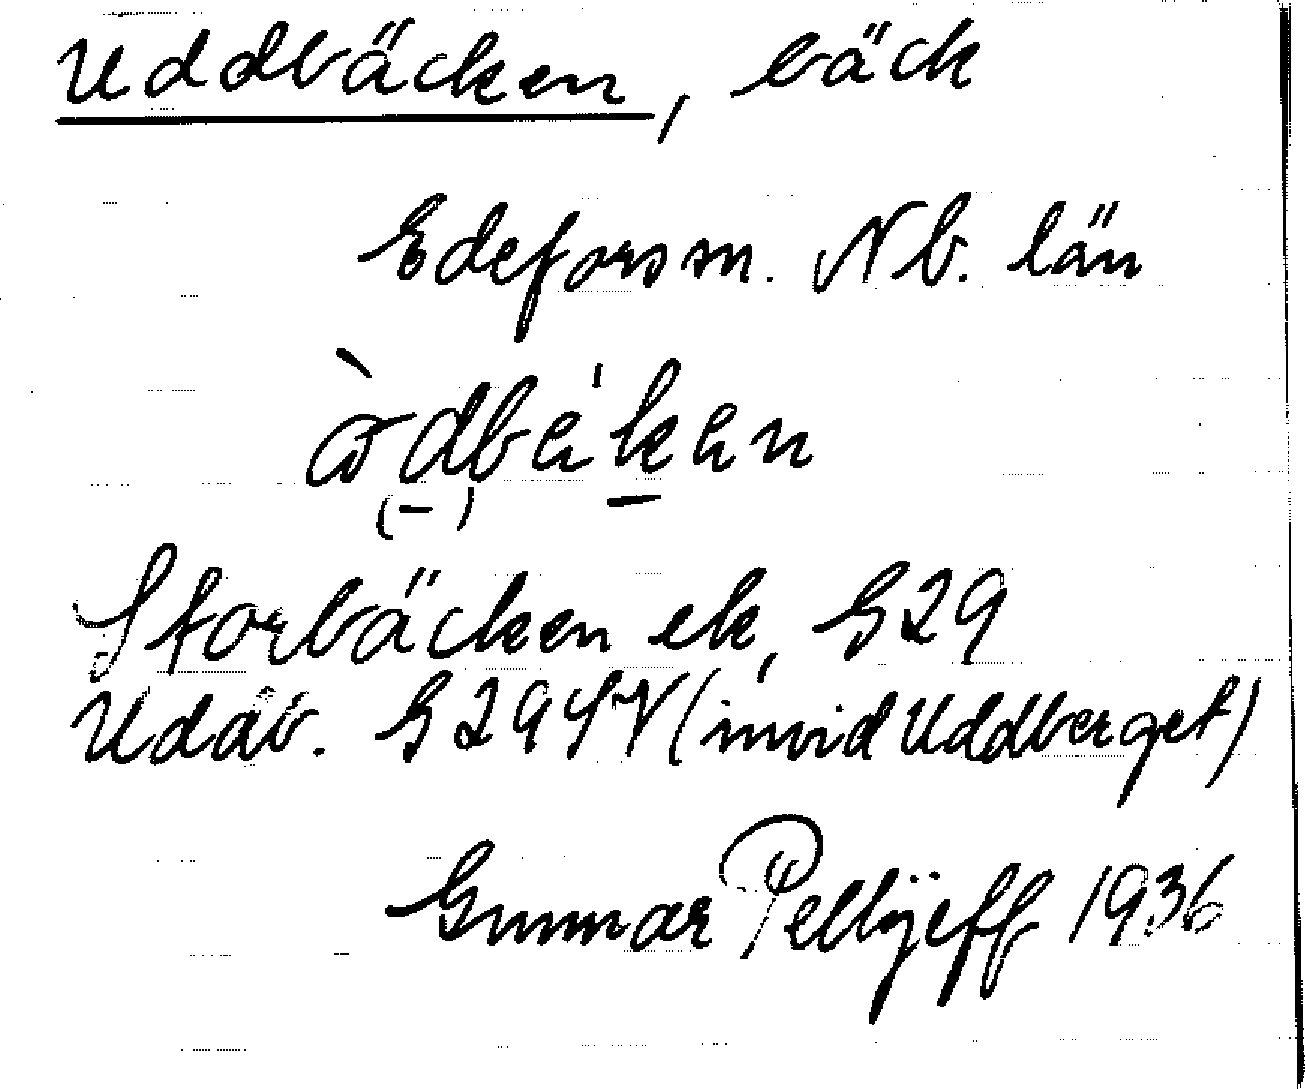 Uddbäcken, bäck
Edefors sn. Nb. län
Storbäcken ek, S29
Udab. S29SV (invid Uddberget)
Gunnar Pellijeff 1936